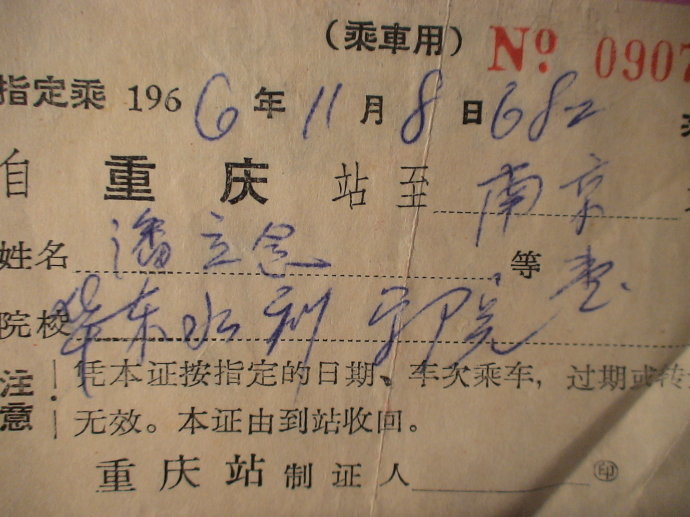 (乘車用) № 0907
指定乘 1966年11月8日682
自 重庆 站至 南京
姓名 潘立念 等 壹
院校 华东水利学院
注意 凭本证按指定的日期、车次乘车,过期或转
无效。本证由到站收回。
重庆站制证人 印